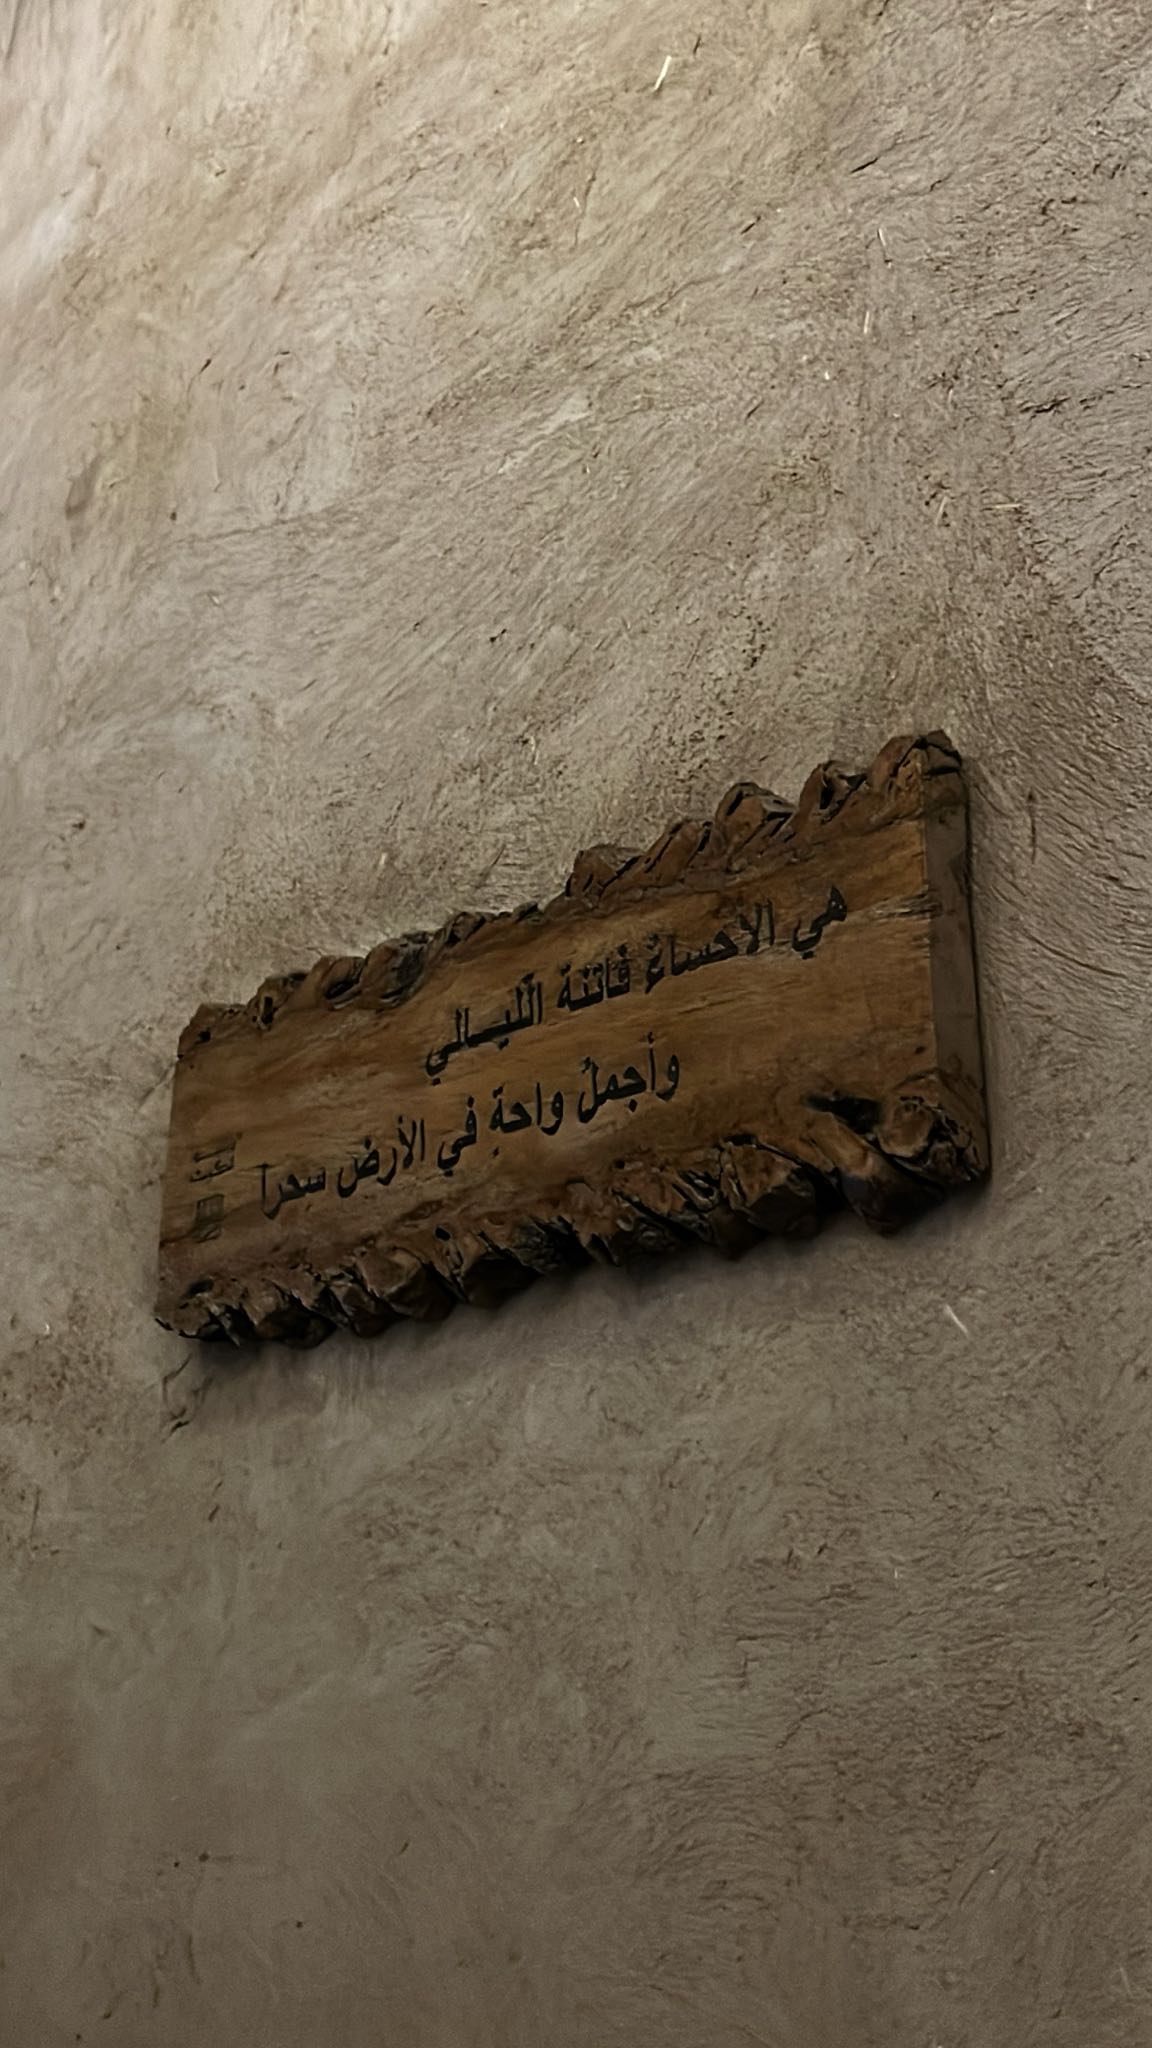 هي الاحساءُ فاتنة الّليالي
وأجملُ واحةٍ في الأرض سحرا